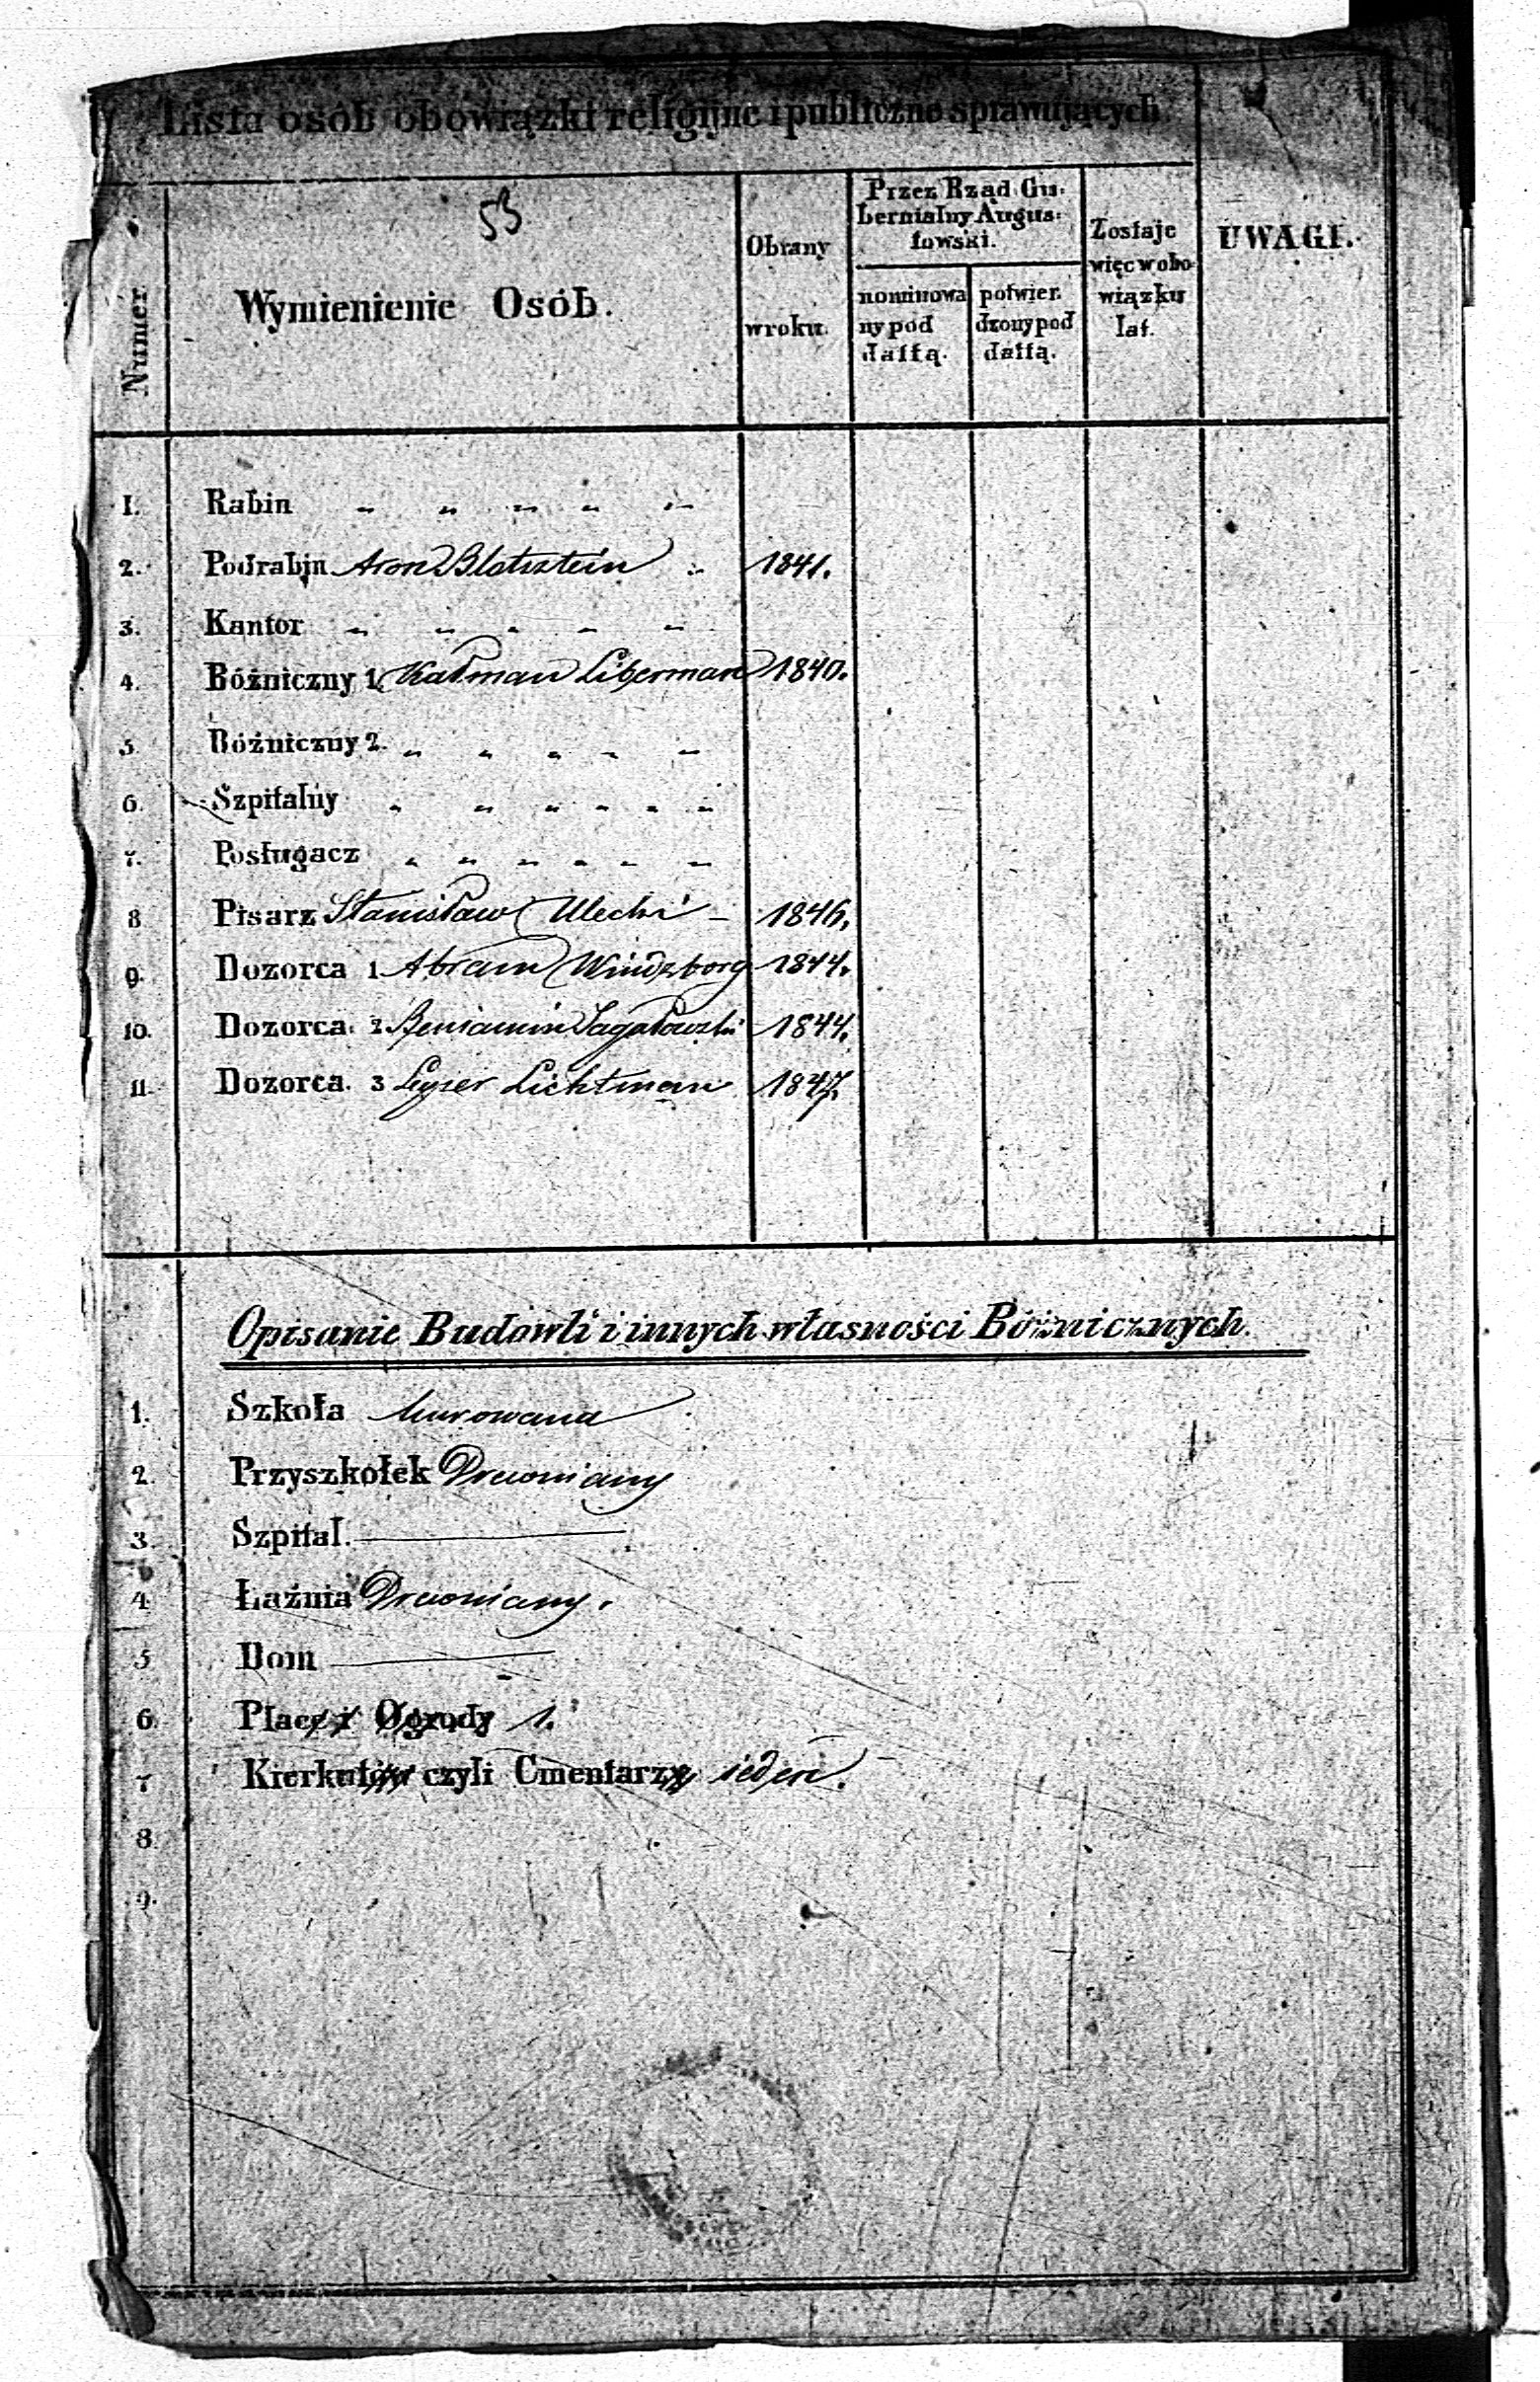 Lista osób obowiązki religijne i publiczne sprawujących.
53
Numer
Wymienienie Osób.
Obrany
w roku.
Przez Rząd Gu-
bernialny Augus-
towski.
nominowa
ny pod
dattą.
potwier.
dzony pod
dattą.
Zostaje
więc w obo-
wiązku
lat.
UWAGI.
1. Rabin " " " " "
2. Podrabin Aron Blotsztein " 1841.
3. Kantor " " " " "
4. Bóżniczny 1. Kałman Liberman 1840.
5. Bóżniczny 2. " " " " "
6. Szpitalny " " " " " "
7. Posługacz " " " " " "
8 Pisarz Stanisław Ulecki – 1846.
9. Dozorca 1 Abram Windzborg 1844.
10. Dozorca. 2 Beniamin Jagałowski 1844.
11. Dozorca. 3 Leyzer Lichtman 1847.
Opisanie Budowli i innych własności Bóżnicznych.
1. Szkoła Murowana
2. Przyszkołek Drewniany
3. Szpital. —
4 Łaźnia Drewniany.
5 Dom —
6. Place i Ogrody 1.
7 Kierkutów czyli Cmentarzy ieden.
8.
9.